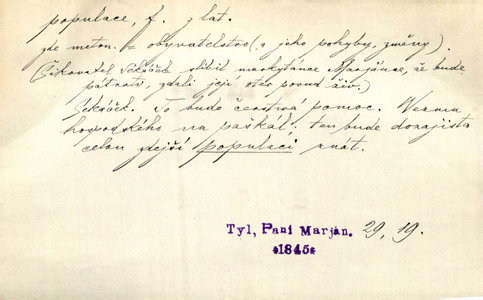 populace, f. z lat.
zde meton. = obyvatelstvo (a jeho pohyby, změny).
(Šikovatel Sekáček slíbil markytánce Marjánce, že bude
pátrati, zdali její otec posud živ.)
Sekáček. To bude čerstvá pomoc. Vezmu
hospodského na paškál; ten bude dozajista
celou zdejší populaci znát.
Tyl, Paní Marján. 29, 19.
*1845*